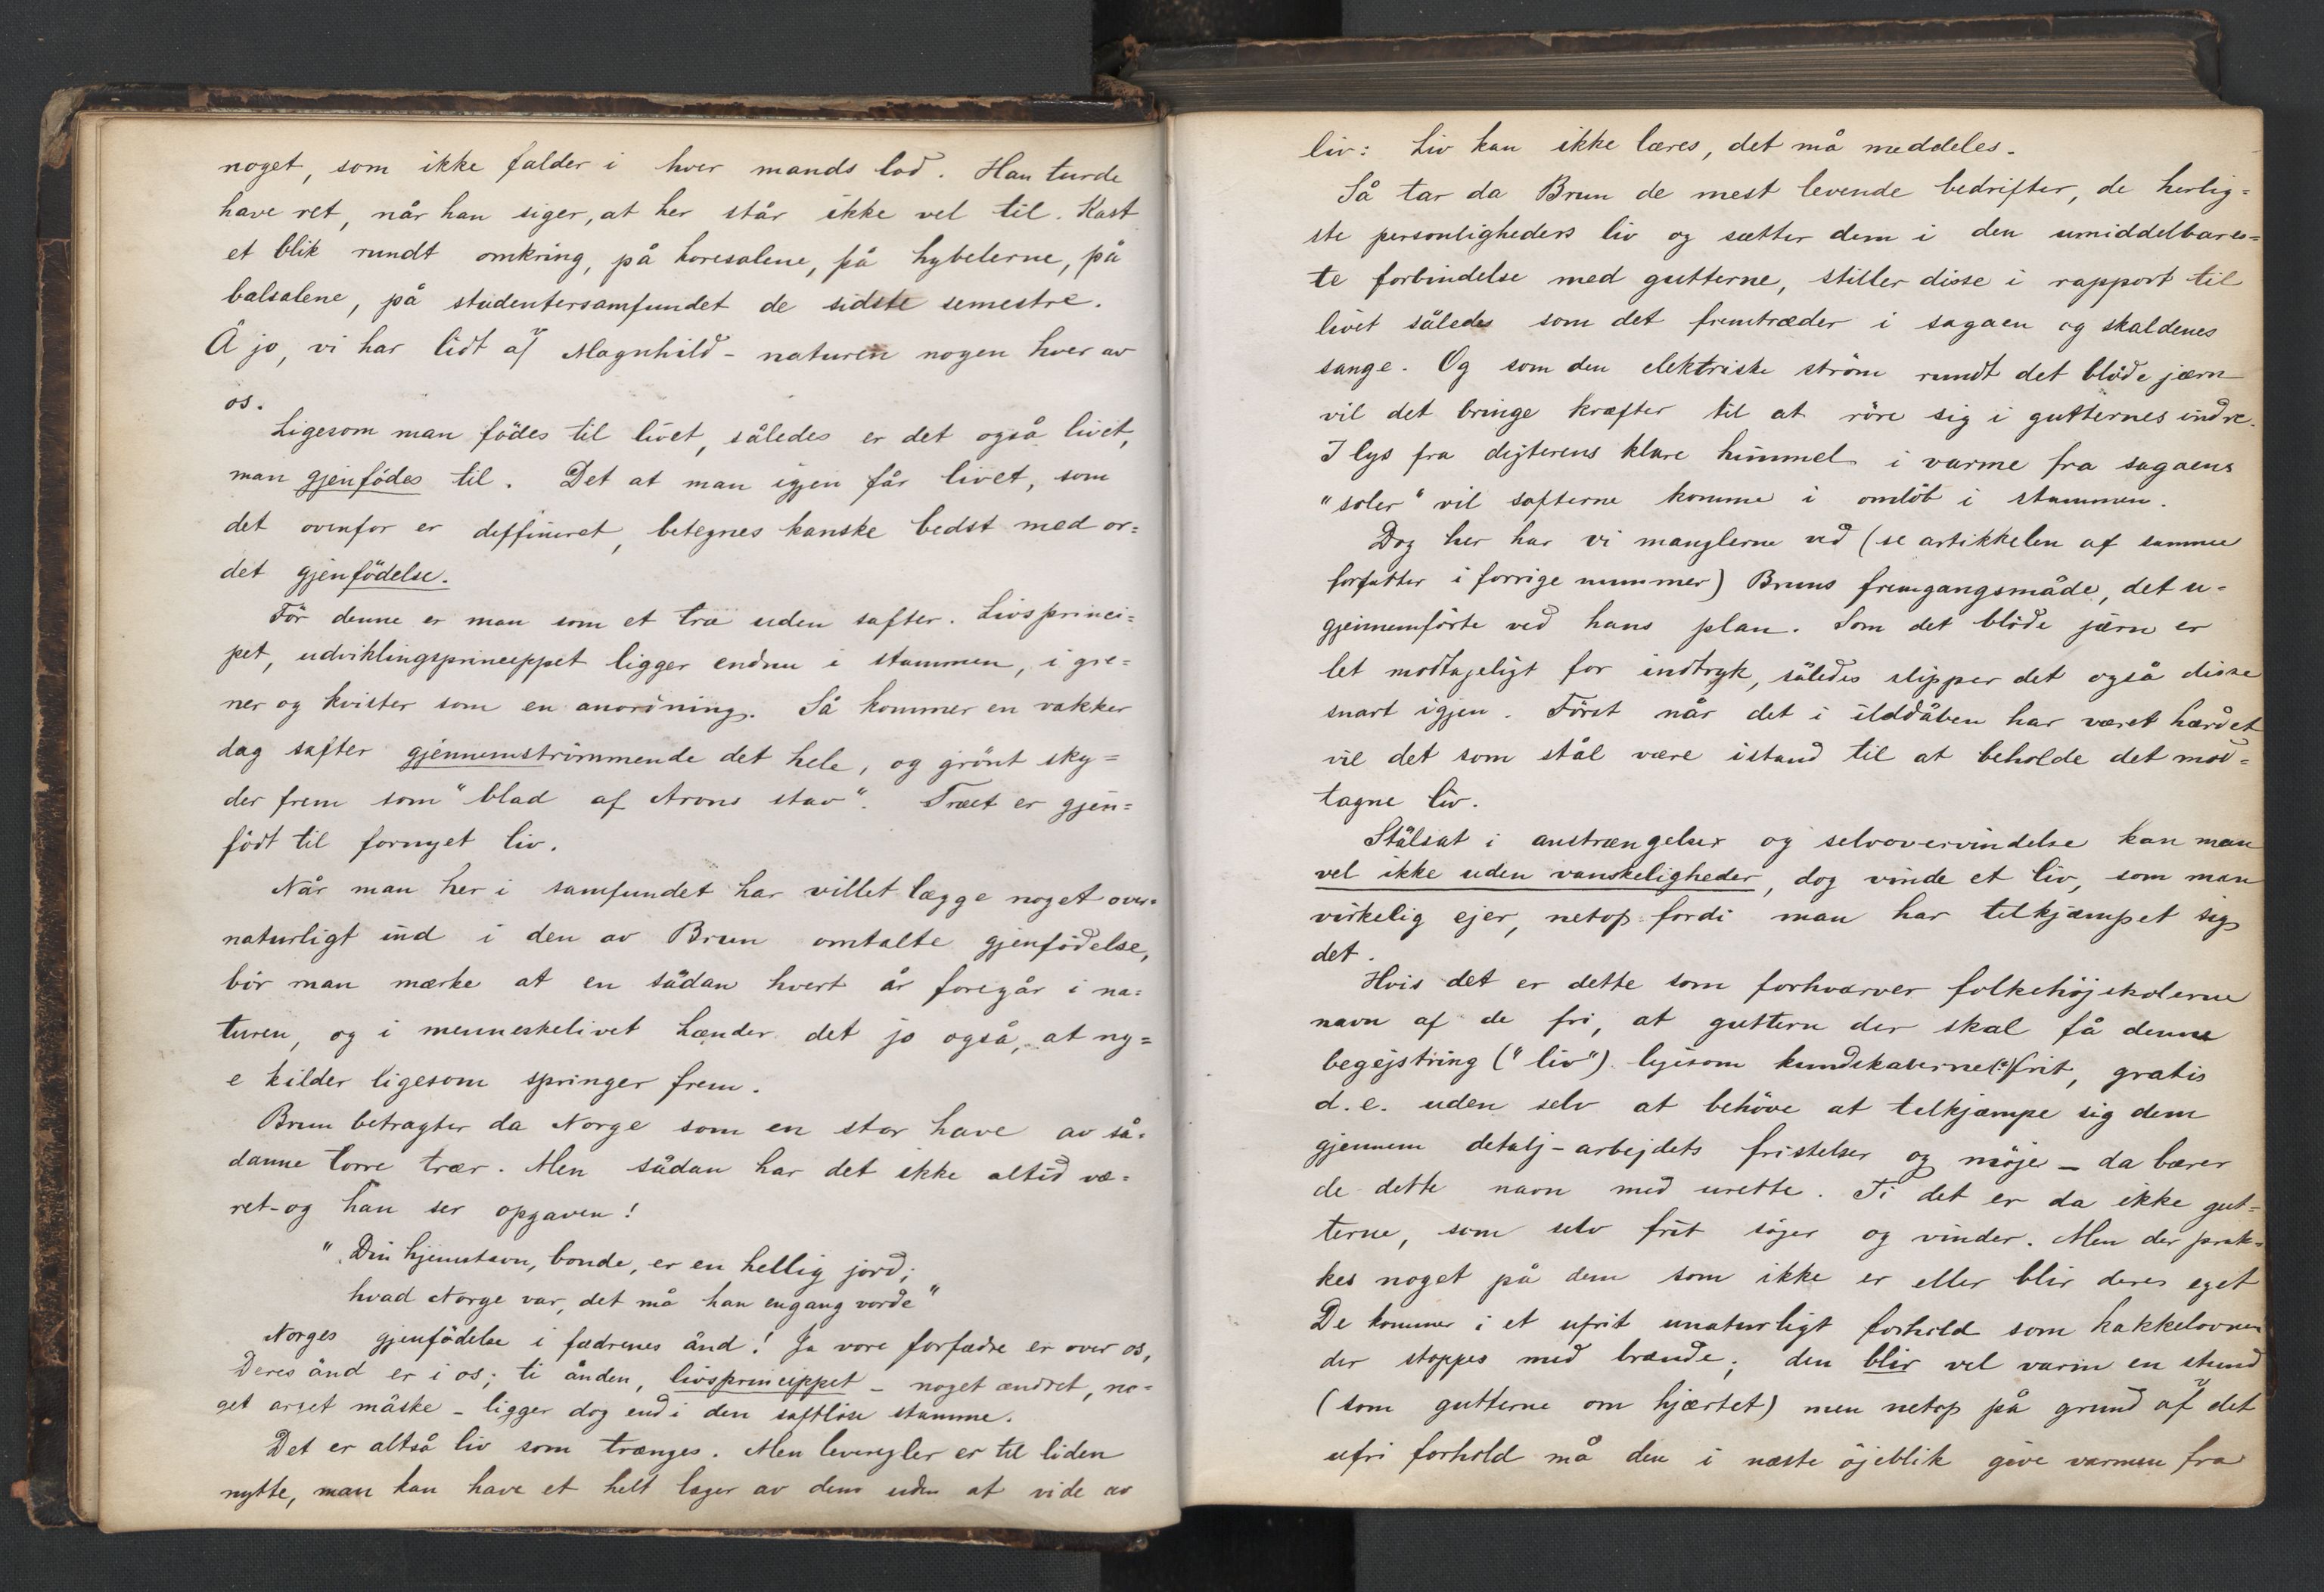 noget, som ikke falder i hver mands lod. Han turde
have ret, når han siger, at her står ikke vel til. Kast
et blik rundt omkring, på horesalene, på hybelerne, på
balsalene, på studentersamfundet de sidste semestre.
Å jo, vi har lidt af Magnhild-naturen nogen hver av
os.
Ligesom man födes til livet, således er det også livet,
man gjenfödes til. Det at man igjen får livet, som
det ovenfor er deffineret, betegnes kanske bedst med or=
det gjenfödelse.
För denne er man som et træ uden safter. Livsprinci=
pet, udviklingsprincippet ligger endnu i stammen, i gre=
ner og kvister som en anordning. Så kommer en vakker
dag safter gjennemströmmende det hele, og grönt sky=
der frem som "blad af Arons stav". Træet er gjen=
födt til fornyet liv.
Når man her i samfundet har villet lægge noget over=
naturligt ind i den av Brun omtalte gjenfödelse,
bör man mærke at en sådan hvert år foregår i na=
turen, og i menneskelivet hænder det jo også, at ny=
e kilder ligesom springer frem.
Brun betragter da Norge som en stor have av så=
danne torre trær. Men sådan har det ikke altid væ=
ret-og han ser opgaven!
"Din hjemstavn, bonde, er en hellig jord;
hvad Norge var, det må han engang vorde"
Norges gjenfödelse i fædrenes ånd! Ja vore forfædre er over os,
Deres ånd er i os; ti ånden, livsprincippet - noget ændret, no=
get arget måske - ligger dog end i den saftlöse stamme.
Det er altså liv som trænges. Men leveregler er til liden
nytte, man kan have et helt lager av dem uden at vide av
liv: Liv kan ikke læres, det må meddeles.
Så tar da Brun de mest levende bedrifter, de herlig=
ste personligheders liv og sætter dem i den umiddelbares=
te forbindelse med gutterne, stiller disse i rapport til
livet således som det fremtræder i sagaen og skaldenes
sange. Og som den elektriske ström rundt det blöde jærn
vil det bringe kræfter til at röre sig i gutternes indre.
I lys fra digterens klare himmel i varme fra sagaens
"soler" vil safterne komme i omlöb i stammen.
Dog her har vi manglerne ved (se artikkelen af samme
forfatter i forrige nummer) Bruns fremgangsmåde, det u=
gjennemförte ved hans plan. Som det blöde jærn er
let modtageligt for indtryk, således slipper det også disse
snart igjen. Först når det i ilddåben har været hærdet
vil det som stål være istand til at beholde det mod=
tagne liv.
Stålsat i anstrængelser og selvovervindelse kan man
vel ikke uden vanskeligheder, dog vinde et liv, som man
virkelig ejer, netop fordi man har tilkjæmpet sig
det.
Hvis det er dette som forhværver folkehöjskolerne
navn af de fri, at guttern der skal få denne
begejstring ("liv") ligesom kundskaberne(?) frit, gratis
d.e. uden selv at behöve at tilkjæmpe sig dem
gjennem detalj-arbejdets fristelser og möje - da bærer
de dette navn med urette. Ti det er da ikke gut=
terne, som selv frit söger og vinder. Men der prak=
kes noget på dem som ikke er eller blir deres eget
De kommer i et ufrit unaturligt forhold som kakkelovnen
der stoppes med brænde; den blir vel varm en stund
(som gutterne om hjærtet) men netop på grund af det
ufri forhold må den i næste öjeblik give varmen fra